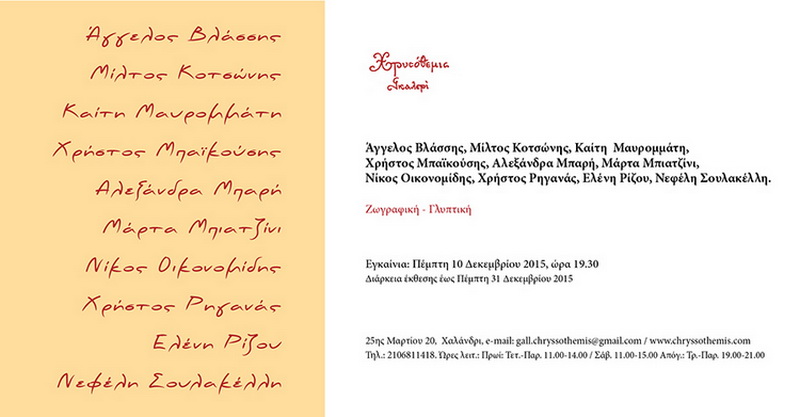 Άγγελος Βλάσσης
Μίλτος Κοτσώνης
Καίτη Μαυρομμάτη
Χρήστος Μπαϊκούσης
Αλεξάνδρα Μπαρή
Μάρτα Μπιατζίνι
Νίκος Οικονομίδης
Χρήστος Ρηγανάς
Ελένη Ρίζου
Νεφέλη Σουλακέλλη
Χρυσόθεμις
Γκαλερί
Άγγελος Βλάσσης, Μίλτος Κοτσώνης, Καίτη Μαυρομμάτη,
Χρήστος Μπαϊκούσης, Αλεξάνδρα Μπαρή, Μάρτα Μπιατζίνι,
Νίκος Οικονομίδης, Χρήστος Ρηγανάς, Ελένη Ρίζου, Νεφέλη Σουλακέλλη.
Ζωγραφική - Γλυπτική
Εγκαίνια: Πέμπτη 10 Δεκεμβρίου 2015, ώρα 19.30
Διάρκεια έκθεσης έως Πέμπτη 31 Δεκεμβρίου 2015
25ης Μαρτίου 20, Χαλάνδρι, e-mail: gall.chryssothemis@gmail.com / www.chryssothemis.com
Τηλ.: 2106811418. Ώρες λειτ.: Πρωί: Τετ.-Παρ. 11.00-14.00 / Σάβ. 11.00-15.00 Απόγ.: Τρ.-Παρ. 19.00-21.00